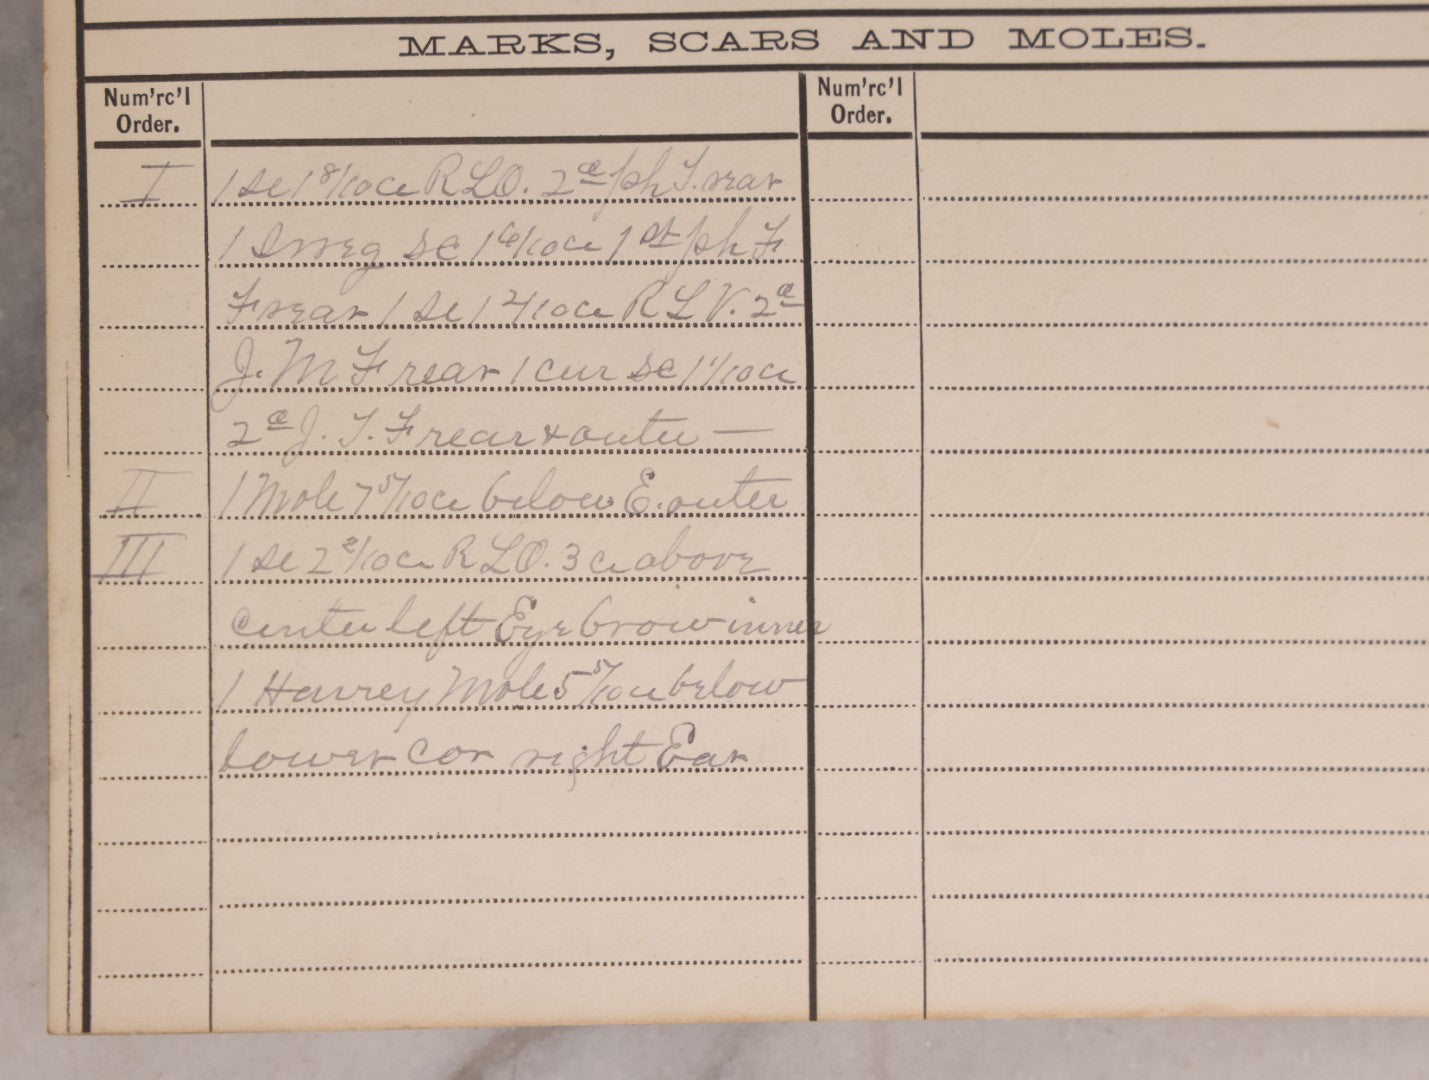 MARKS, SCARS AND MOLES.
Num'rc'l Order.
Num'rc'l Order.
I 1 sc 1 8/10 ce R L O. 2d ph T. rear
1 Irreg sc 1 6/10 ce 1st ph F
F rear 1 sc 1 2/10 ce R L V. 2d
J. M F rear 1 cur sc 1 1/10 ce
2d J. T. F rear & outer —
II 1 Mole 7 5/10 ce below E. outer
III 1 sc 2 2/10 ce R L O. 3 ce above
center left Eye brow inner
1 Hairey Mole 5 5/10 ce below
lower cor right Ear